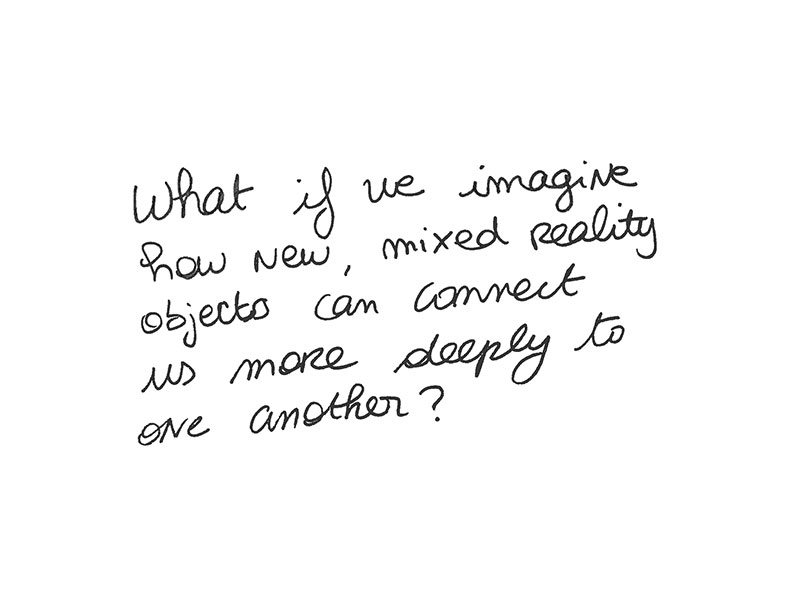 What if we imagine
how new, mixed reality
objects can connect
us more deeply to
one another?